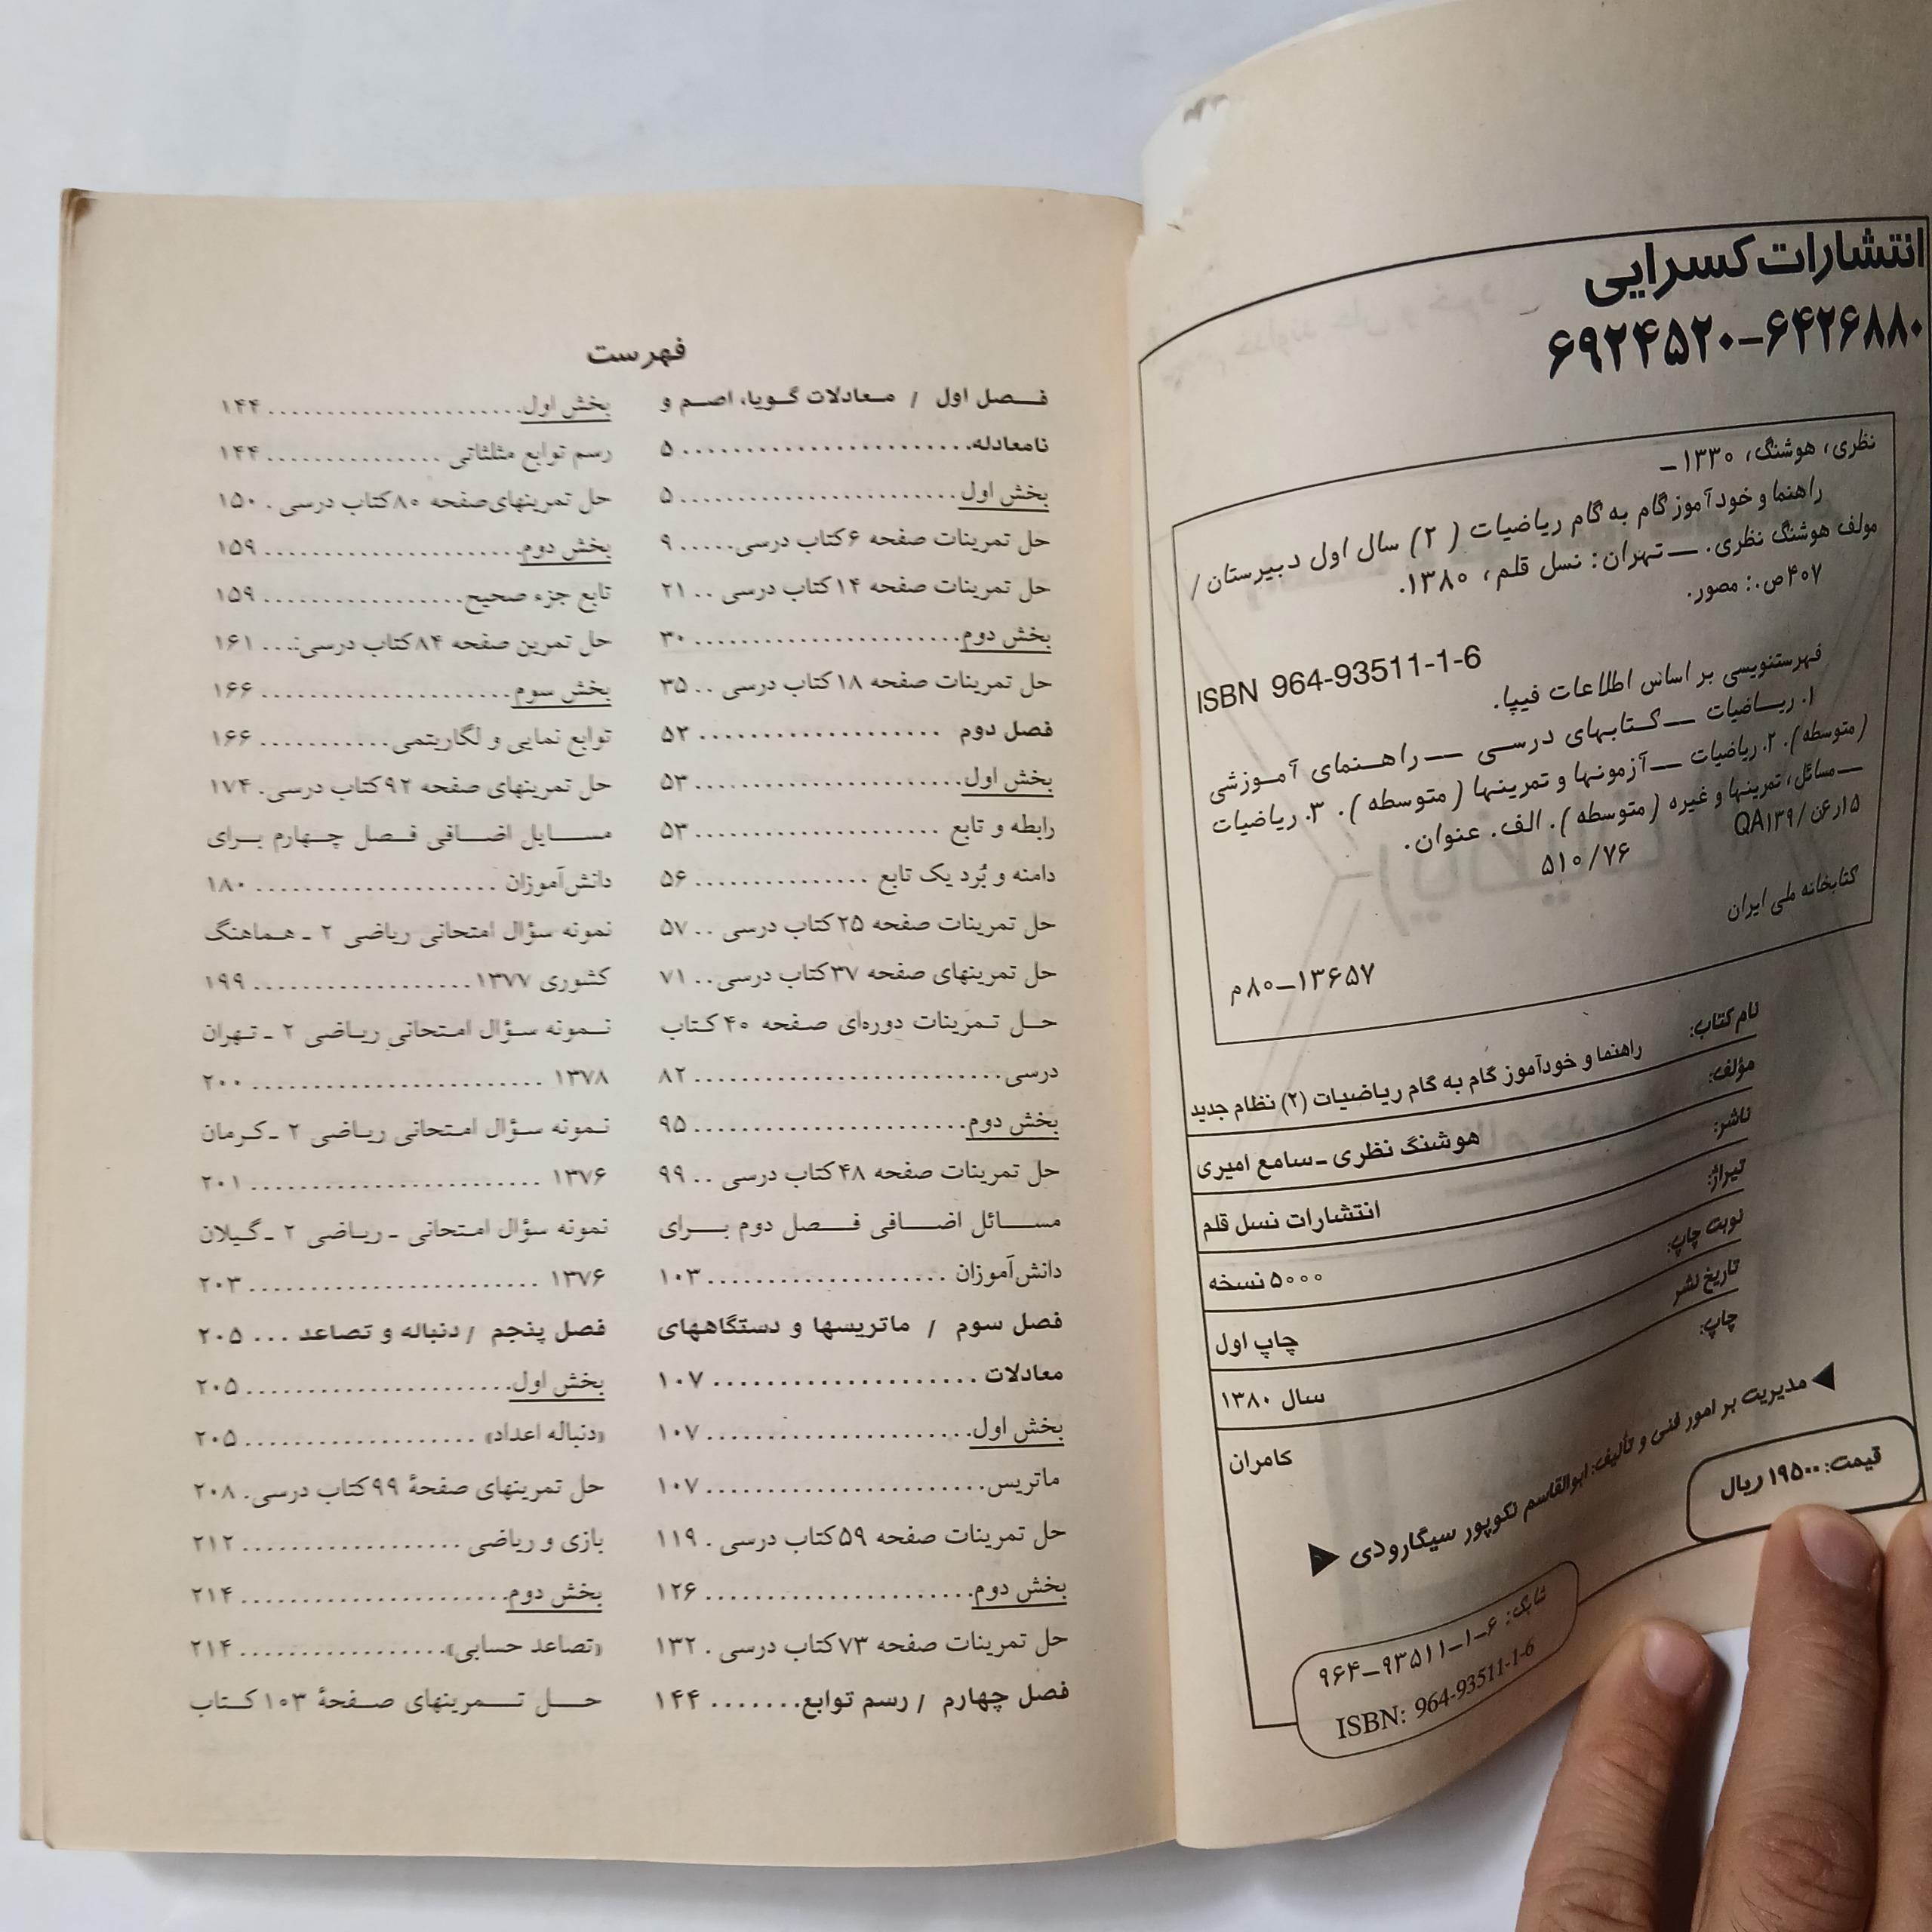 انتشارات کسرایی
۶۹۲۴۵۲۰-۶۴۲۶۸۸۰
نظری، هوشنگ، ۱۳۳۰-
راهنما و خودآموز گام به گام ریاضیات ( ۲) سال اول دبیرستان /
مولف هوشنگ نظری. — تهران: نسل قلم، ۱۳۸۰.
۴۰۷ص.: مصور.
ISBN 964-93511-1-6
فهرستنویسی بر اساس اطلاعات فیپا.
۱. ریاضیات — کتابهای درسی — راهنمای آموزشی
(متوسطه). ۲. ریاضیات — آزمونها و تمرینها (متوسطه). ۳. ریاضیات
— مسائل، تمرینها و غیره (متوسطه). الف. عنوان.
۵ار۶ن/ QA۱۳۹
۵۱۰/۷۶
کتابخانه ملی ایران
م۸۰-۱۳۶۵۷
نام کتاب: راهنما و خودآموز گام به گام ریاضیات (۲) نظام جدید
مؤلف: هوشنگ نظری - سامع امیری
ناشر: انتشارات نسل قلم
تیراژ: ۵۰۰۰ نسخه
نوبت چاپ: چاپ اول
تاریخ نشر سال ۱۳۸۰
چاپ: کامران
مدیریت بر امور فنی و تألیف: ابوالقاسم نکوپور سیگارودی
قیمت: ۱۹۵۰۰ ریال
شابک: ۶-۱-۹۳۵۱۱-۹۶۴
ISBN: 964-93511-1-6
فهرست
فصل اول / معادلات گویا، اصم و
نامعادله........................ ۵
بخش اول........................ ۵
حل تمرینات صفحه ۶کتاب درسی..... ۹
حل تمرینات صفحه ۱۴کتاب درسی .. ۲۱
بخش دوم....................... ۳۰
حل تمرینات صفحه ۱۸کتاب درسی .. ۳۵
فصل دوم .................... ۵۲
بخش اول....................... ۵۳
رابطه و تابع ..................... ۵۳
دامنه و بُرد یک تابع ................ ۵۶
حل تمرینات صفحه ۲۵کتاب درسی .. ۵۷
حل تمرینهای صفحه ۳۷کتاب درسی.. ۷۱
حل تمرینات دوره‌ای صفحه ۴۰ کتاب
درسی........................... ۸۲
بخش دوم....................... ۹۵
حل تمرینات صفحه ۴۸کتاب درسی .. ۹۹
مسائل اضافی فصل دوم برای
دانش‌آموزان .................... ۱۰۳
فصل سوم / ماتریسها و دستگاههای
معادلات ..................... ۱۰۷
بخش اول...................... ۱۰۷
ماتریس........................ ۱۰۷
حل تمرینات صفحه ۵۹کتاب درسی . ۱۱۹
بخش دوم...................... ۱۲۶
حل تمرینات صفحه ۷۳کتاب درسی . ۱۳۲
فصل چهارم / رسم توابع....... ۱۴۴
بخش اول...................... ۱۴۴
رسم توابع مثلثاتی ............... ۱۴۴
حل تمرینهای‌صفحه ۸۰کتاب درسی . ۱۵۰
بخش دوم...................... ۱۵۹
تابع جزء صحیح................. ۱۵۹
حل تمرین صفحه ۸۴کتاب درسی:... ۱۶۱
بخش سوم...................... ۱۶۶
توابع نمایی و لگاریتمی........... ۱۶۶
حل تمرینهای صفحه ۹۲کتاب درسی. ۱۷۴
مسایل اضافی فصل چهارم برای
دانش‌آموزان ..................... ۱۸۰
نمونه سؤال امتحانی ریاضی ۲ ـ هماهنگ
کشوری ۱۳۷۷................... ۱۹۹
نمونه سؤال امتحانی ریاضی ۲ ـ تهران
۱۳۷۸ ......................... ۲۰۰
نمونه سؤال امتحانی ریاضی ۲ ـ کرمان
۱۳۷۶ ......................... ۲۰۱
نمونه سؤال امتحانی ـ ریاضی ۲ ـ گیلان
۱۳۷۶ ......................... ۲۰۳
فصل پنجم / دنباله و تصاعد ... ۲۰۵
بخش اول....................... ۲۰۵
«دنباله اعداد» .................... ۲۰۵
حل تمرینهای صفحهٔ ۹۹کتاب درسی. ۲۰۸
بازی و ریاضی ................... ۲۱۲
بخش دوم....................... ۲۱۴
«تصاعد حسابی».................. ۲۱۴
حل تمرینهای صفحهٔ ۱۰۳ کتاب